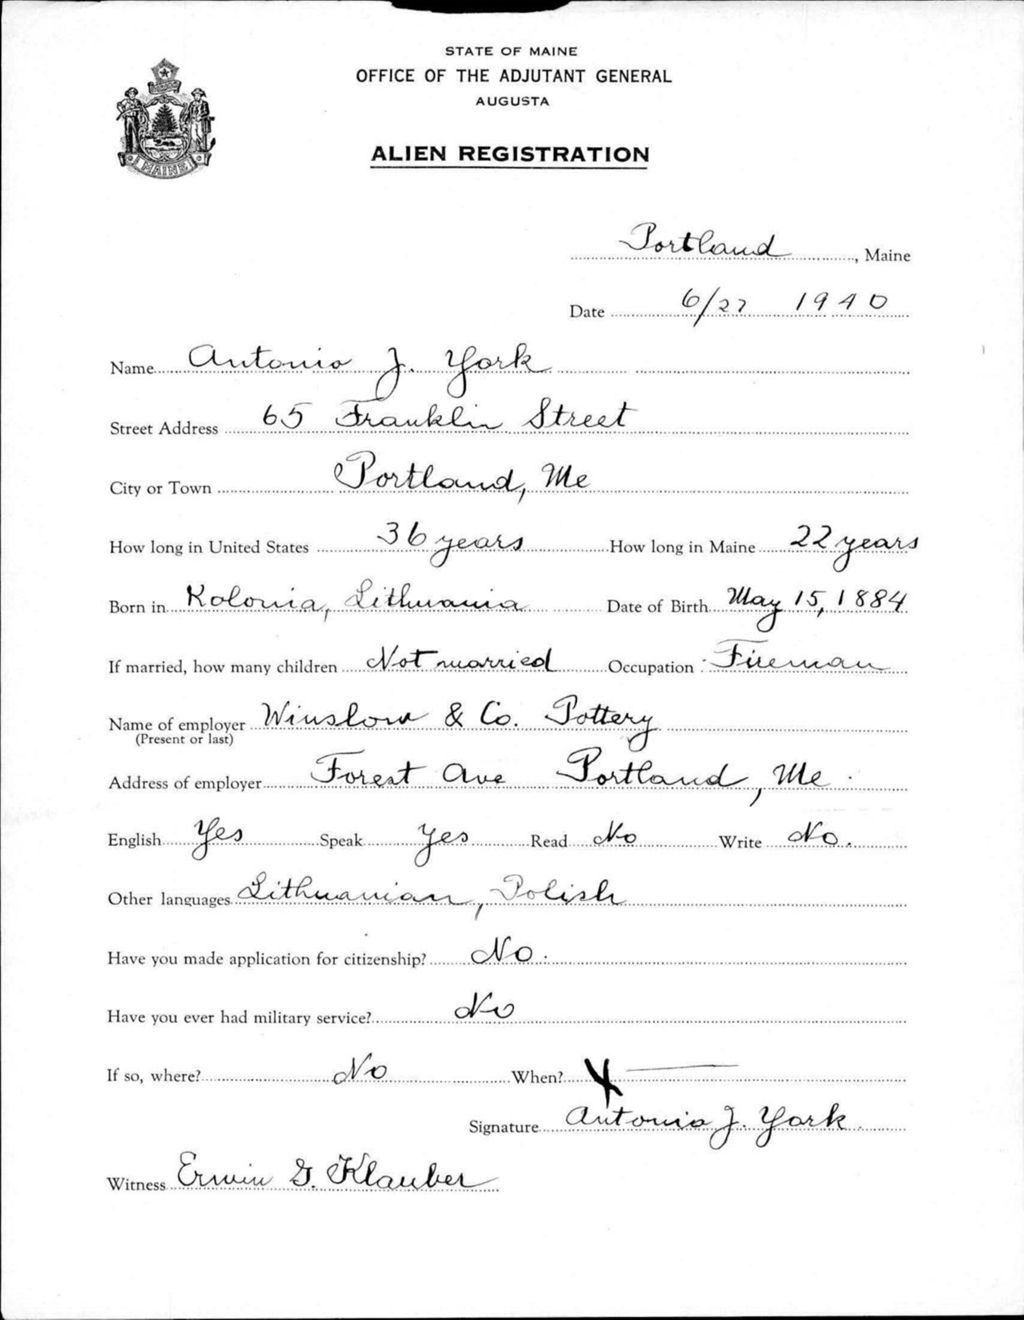 STATE OF MAINE
OFFICE OF THE ADJUTANT GENERAL
AUGUSTA
ALIEN REGISTRATION
MAINE
Portland, Maine
Date 6/27 1940
Name Antonio J. York
Street Address 65 Franklin Street
City or Town Portland, Me
How long in United States 36 years How long in Maine 22 years
Born in Kolonia, Lithuania Date of Birth May 15, 1884
If married, how many children Not married Occupation Fireman
Name of employer Winslow & Co. Pottery
(Present or last)
Address of employer Forest Ave Portland, Me.
English Yes Speak Yes Read No Write No.
Other languages Lithuanian, Polish
Have you made application for citizenship? No.
Have you ever had military service? No
If so, where? No When? X —
Signature Antonio J. York
Witness Erwin G. Klauber